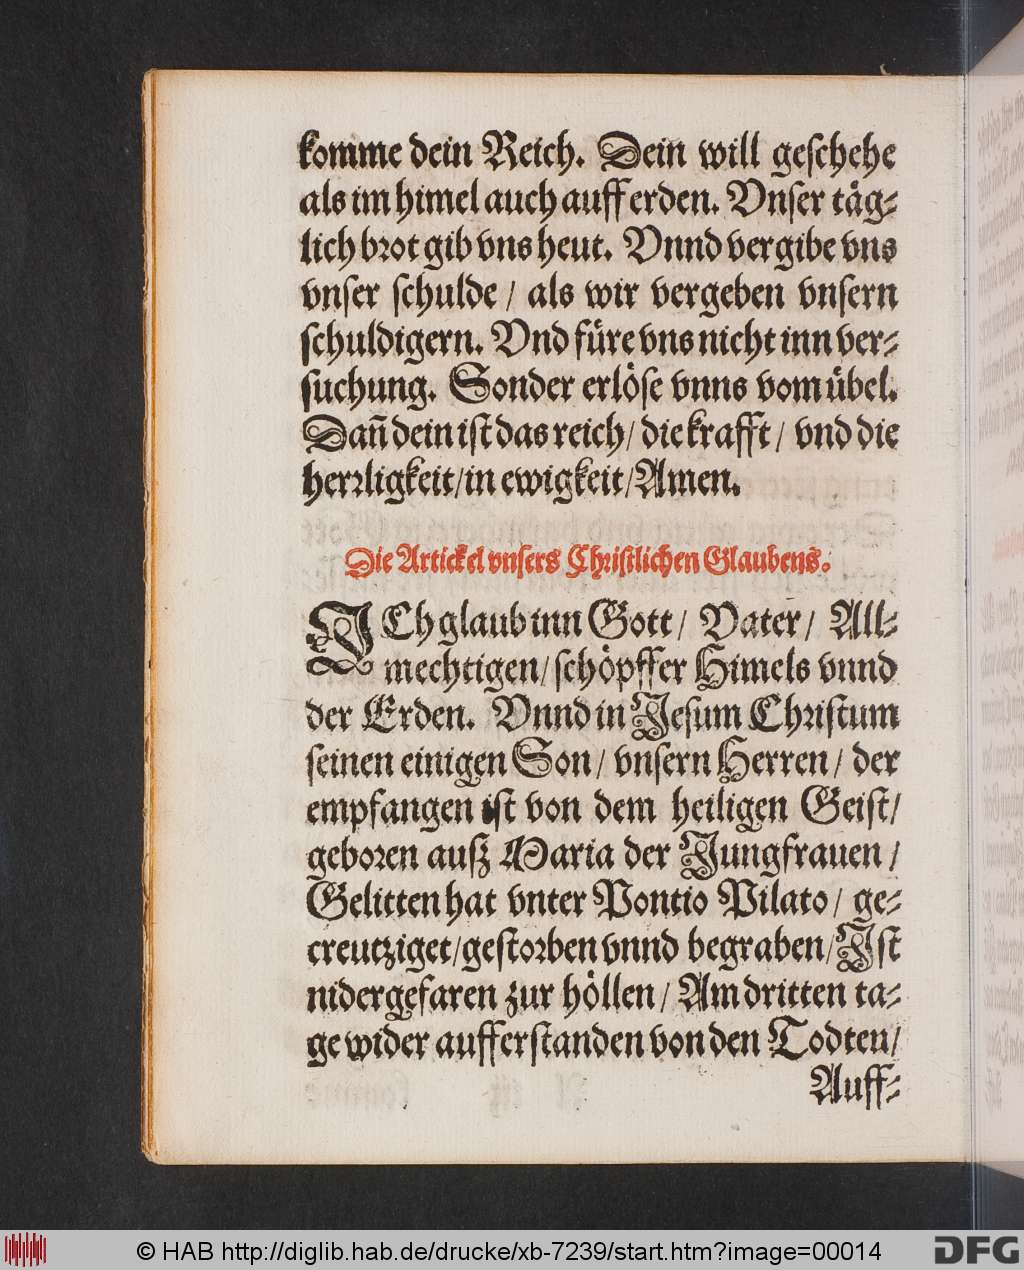 komme dein Reich. Dein will geschehe
als im himel auch auff erden. Vnser täg⸗
lich brot gib vns heut. Vnnd vergibe vns
vnser schulde / als wir vergeben vnsern
schuldigern. Vnd füre vns nicht inn ver⸗
suchung. Sonder erlöse vnns vom übel.
Dañ dein ist das reich / die krafft / vnd die
herrligkeit / in ewigkeit / Amen.
Die Artickel vnsers Christlichen Glaubens.
ICh glaub inn Gott / Vater / All⸗
mechtigen / schöpffer Himels vnnd
der Erden. Vnnd in Jesum Christum
seinen einigen Son / vnsern Herren / der
empfangen ist von dem heiligen Geist /
geboren auß Maria der Jungfrauen /
Gelitten hat vnter Pontio Pilato / ge⸗
creutziget / gestorben vnnd begraben / Ist
nidergefaren zur höllen / Am dritten ta⸗
ge wider aufferstanden von den Todten /
Auff⸗
© HAB http://diglib.hab.de/drucke/xb-7239/start.htm?image=00014
DFG